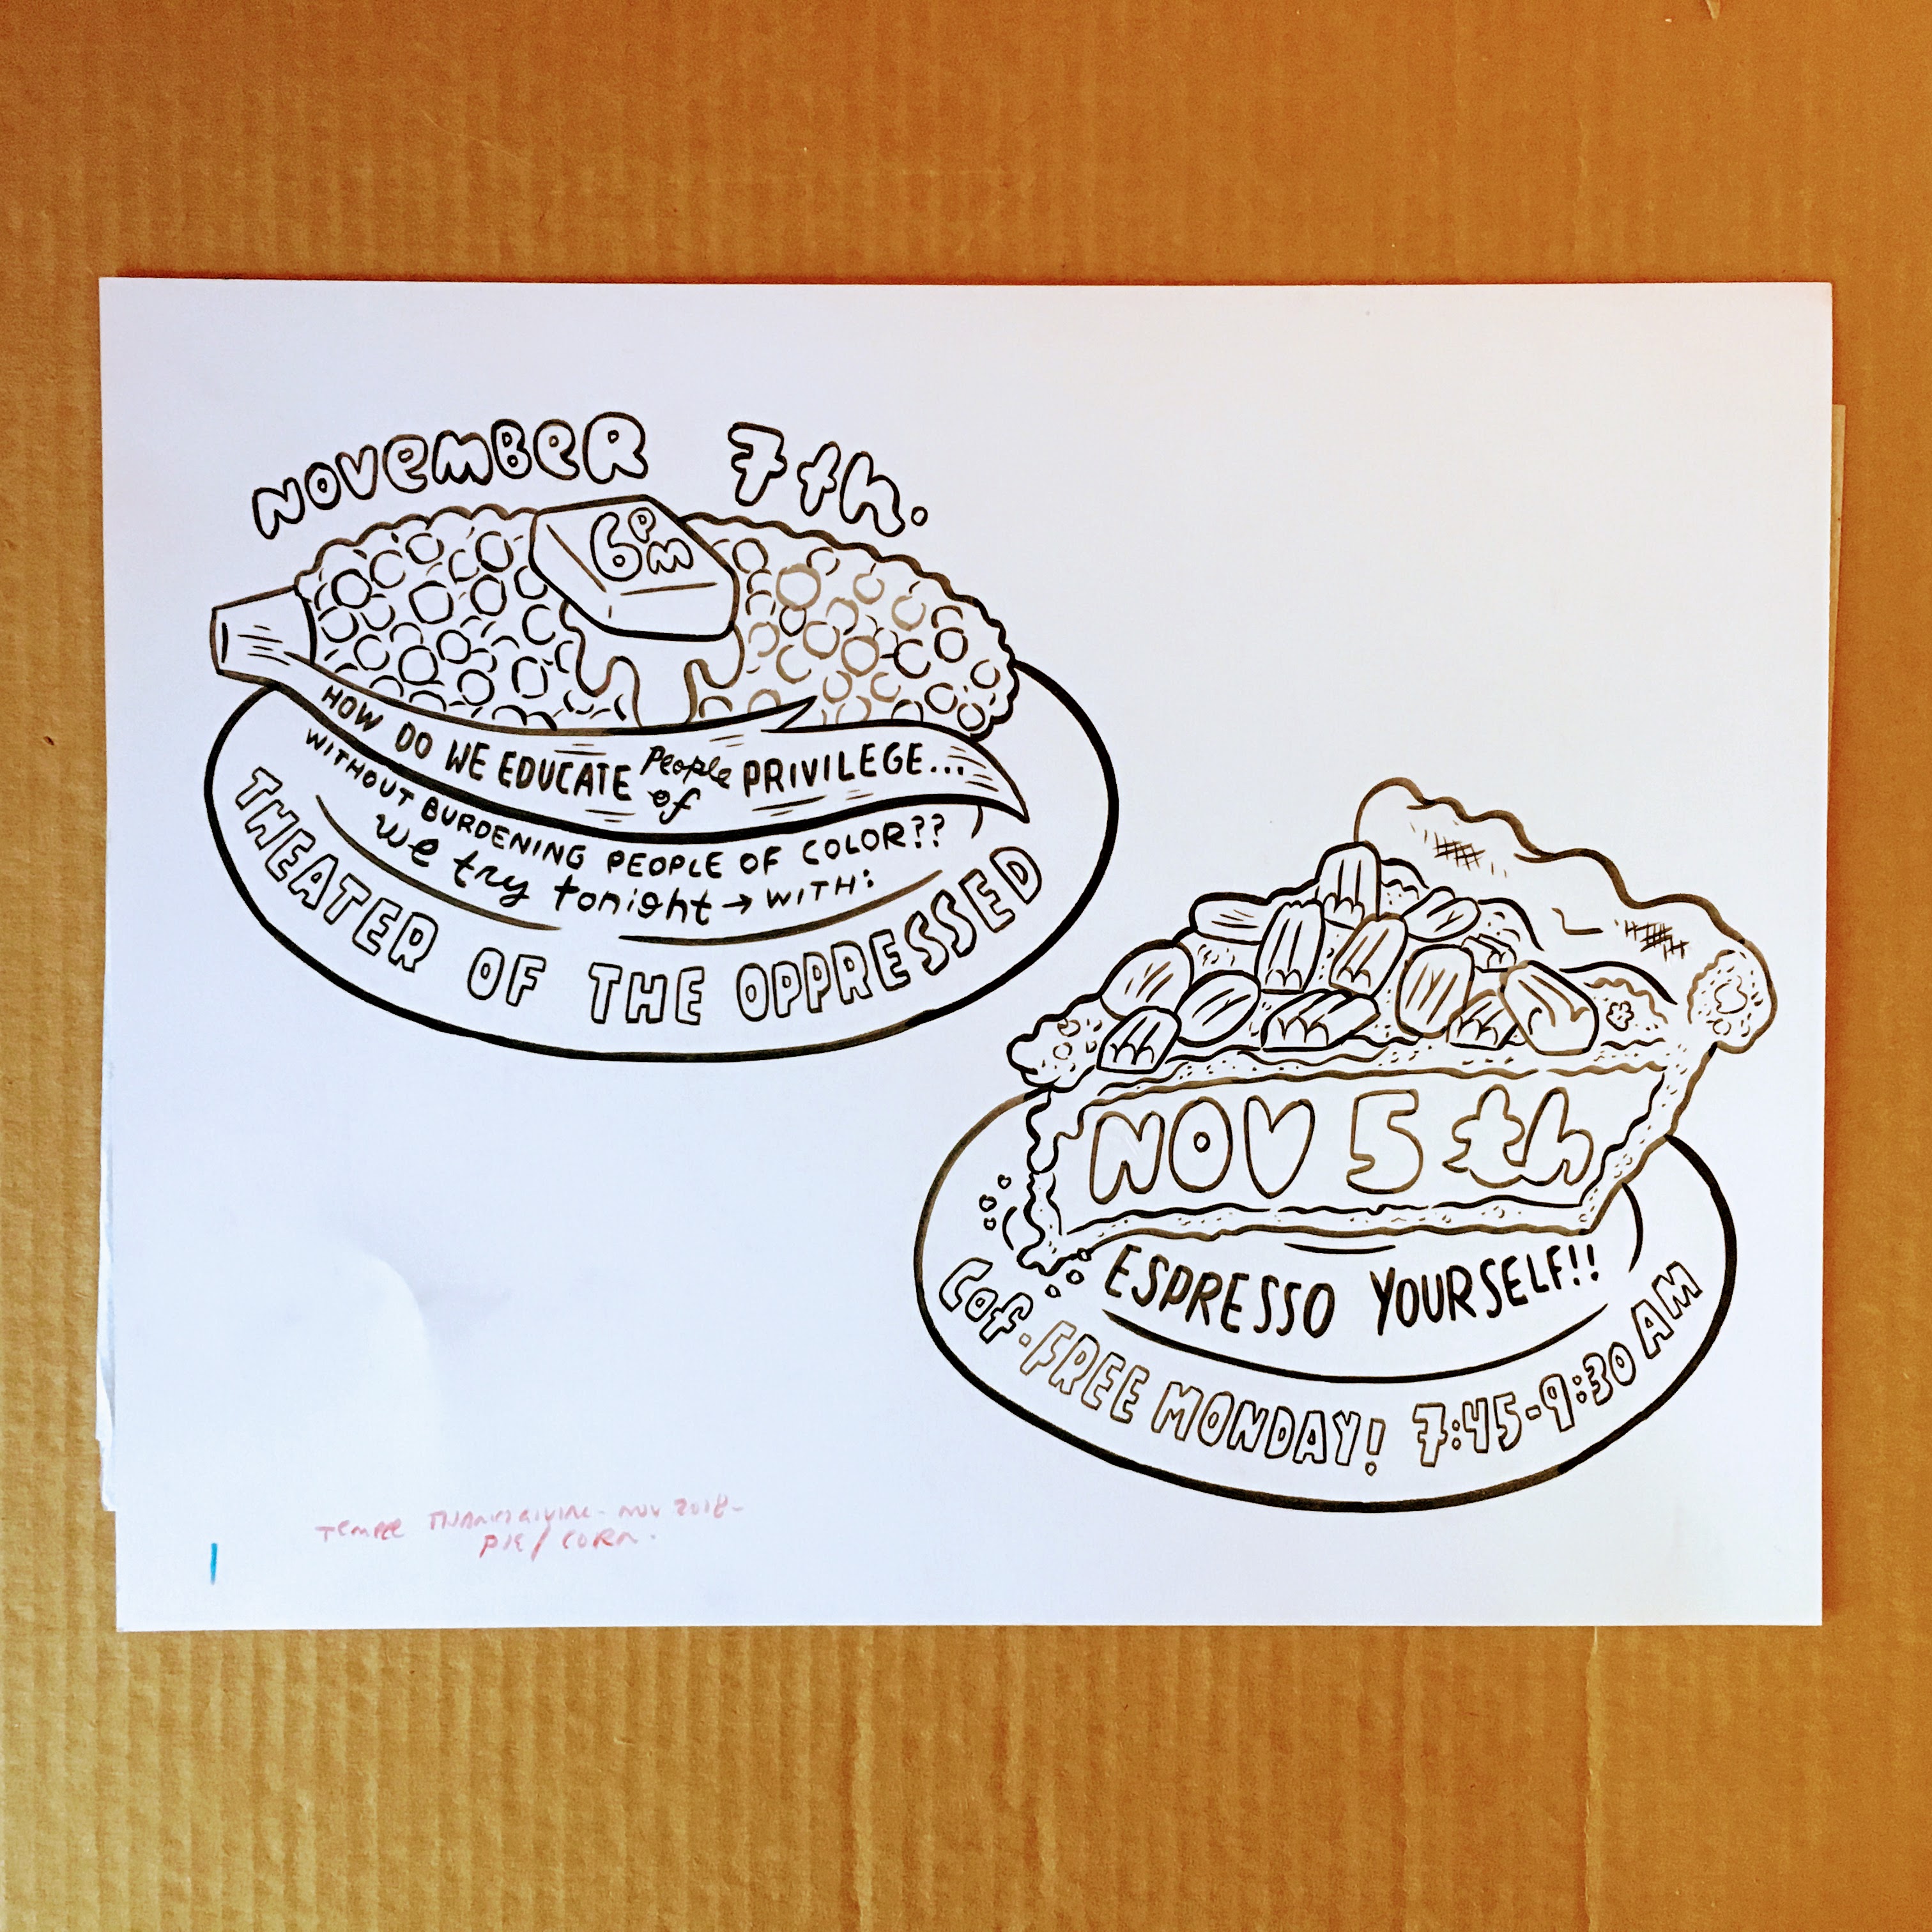 NOVEMBER 7th.
6PM
HOW DO WE EDUCATE People of PRIVILEGE...
WITHOUT BURDENING PEOPLE OF COLOR??
we try tonight → WITH:
THEATER OF THE OPPRESSED
NOV 5th
ESPRESSO YOURSELF!!
Cof-FREE MONDAY! 7:45-9:30 AM
THANKSGIVING - NOV 2018-
PIE/CORN.